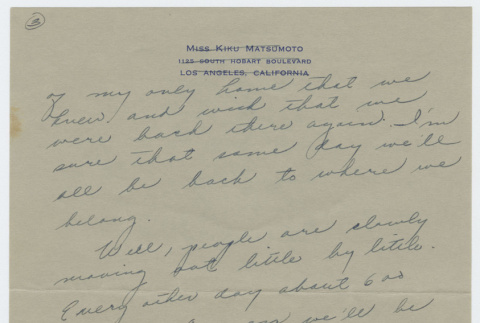 3
MISS KIKU MATSUMOTO
1125 SOUTH HOBART BOULEVARD
LOS ANGELES, CALIFORNIA
of my only home that we
knew and wish that we
were back there again. I'm
sure that some day we'll
all be back to where we
belong.
Well, people are slowly
moving out little by little.
Every other day about 600
we'll be